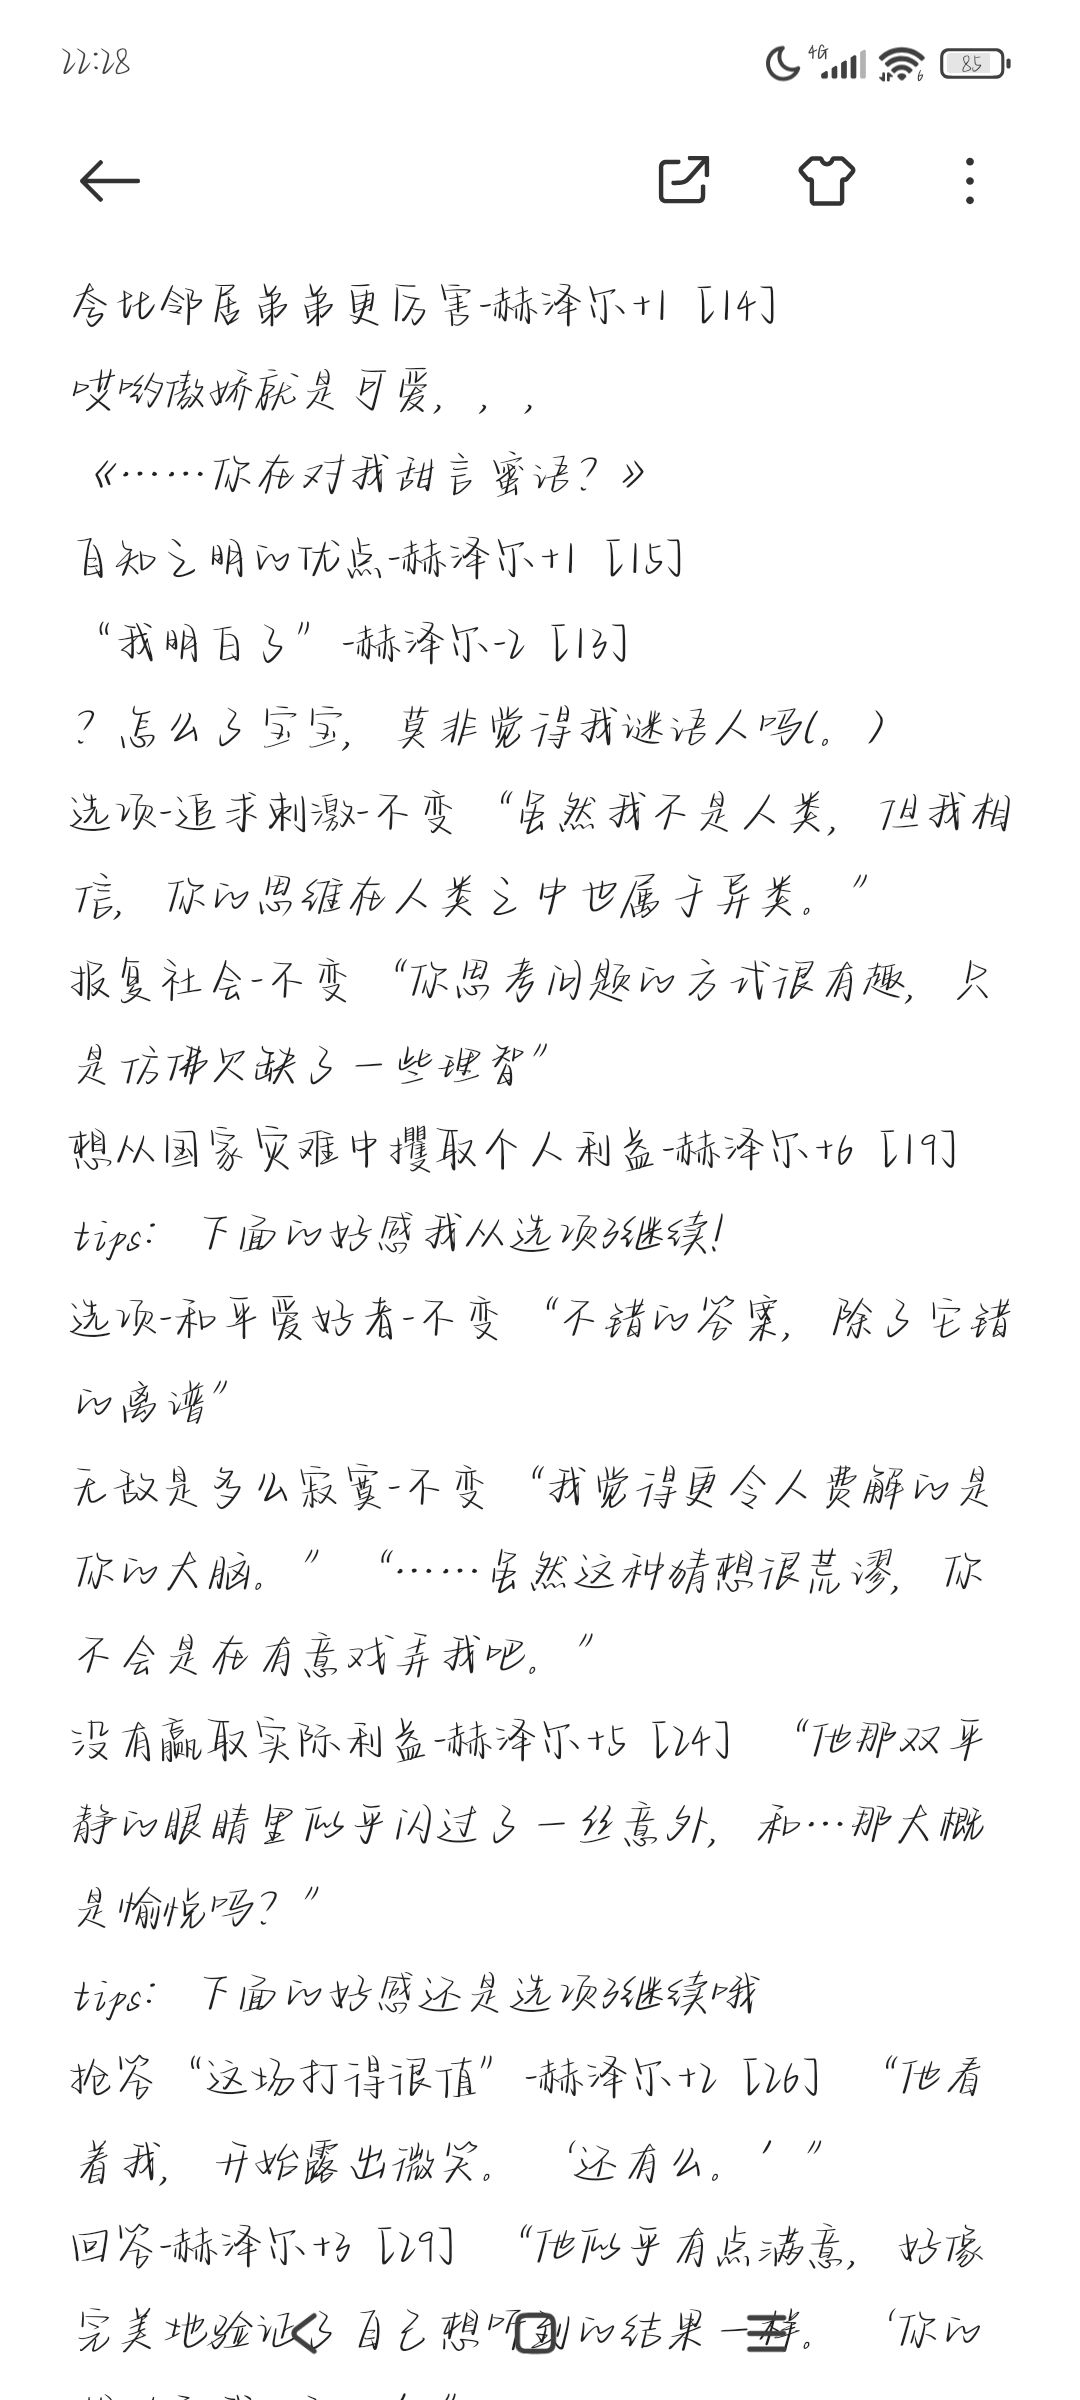 22:28
4G
6
85
夸比邻居弟弟更厉害-赫泽尔+1［14］
哎哟傲娇就是可爱，，，
《……你在对我甜言蜜语？》
自知之明的优点-赫泽尔+1［15］
“我明白了”-赫泽尔-2［13］
？怎么了宝宝，莫非觉得我谜语人吗(。）
选项-追求刺激-不变 “虽然我不是人类，但我相
信，你的思维在人类之中也属于异类。”
报复社会-不变 “你思考问题的方式很有趣，只
是仿佛欠缺了一些理智”
想从国家灾难中攫取个人利益-赫泽尔+6［19］
tips：下面的好感我从选项3继续！
选项-和平爱好者-不变 “不错的答案，除了它错
的离谱”
无敌是多么寂寞-不变 “我觉得更令人费解的是
你的大脑。” “……虽然这种猜想很荒谬，你
不会是在有意戏弄我吧。”
没有赢取实际利益-赫泽尔+5［24］ “他那双平
静的眼睛里似乎闪过了一丝意外，和…那大概
是愉悦吗？”
tips：下面的好感还是选项3继续哦
抢答“这场打得很值”-赫泽尔+2［26］ “他看
着我，开始露出微笑。‘还有么。’”
回答-赫泽尔+3［29］ “他似乎有点满意，好像
完美地验证了自己想听到的结果一样。‘你的